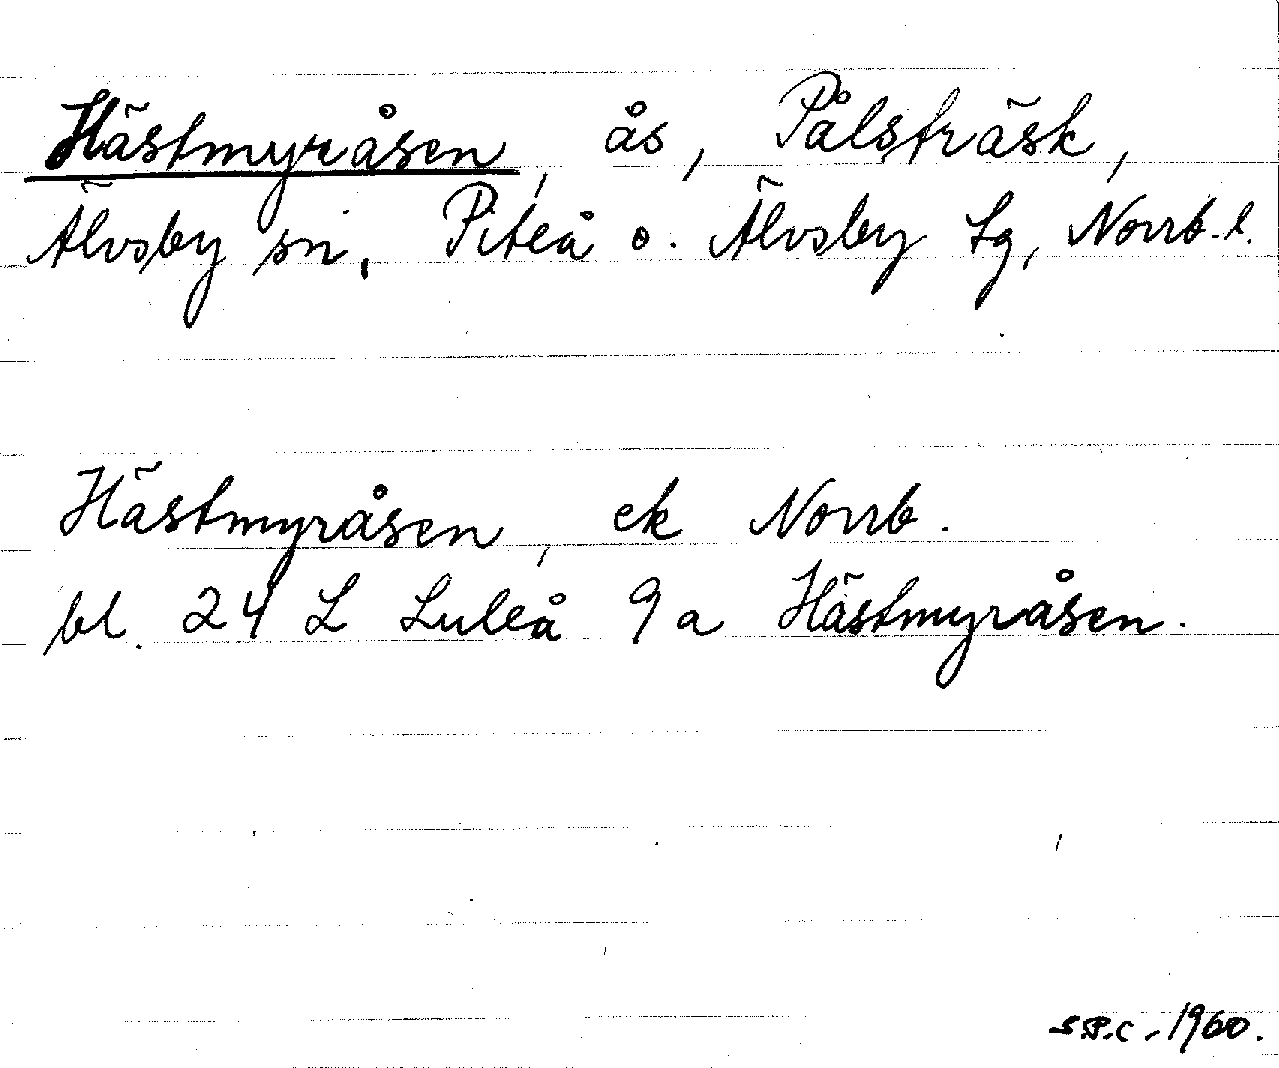 Hästmyråsen, ås, Pålsträsk,
Älvsby sn, Piteå o. Älvsby tg, Norrb. l.
Hästmyråsen, ek Norrb.
bl. 24 L Luleå 9a Hästmyråsen.
1960.